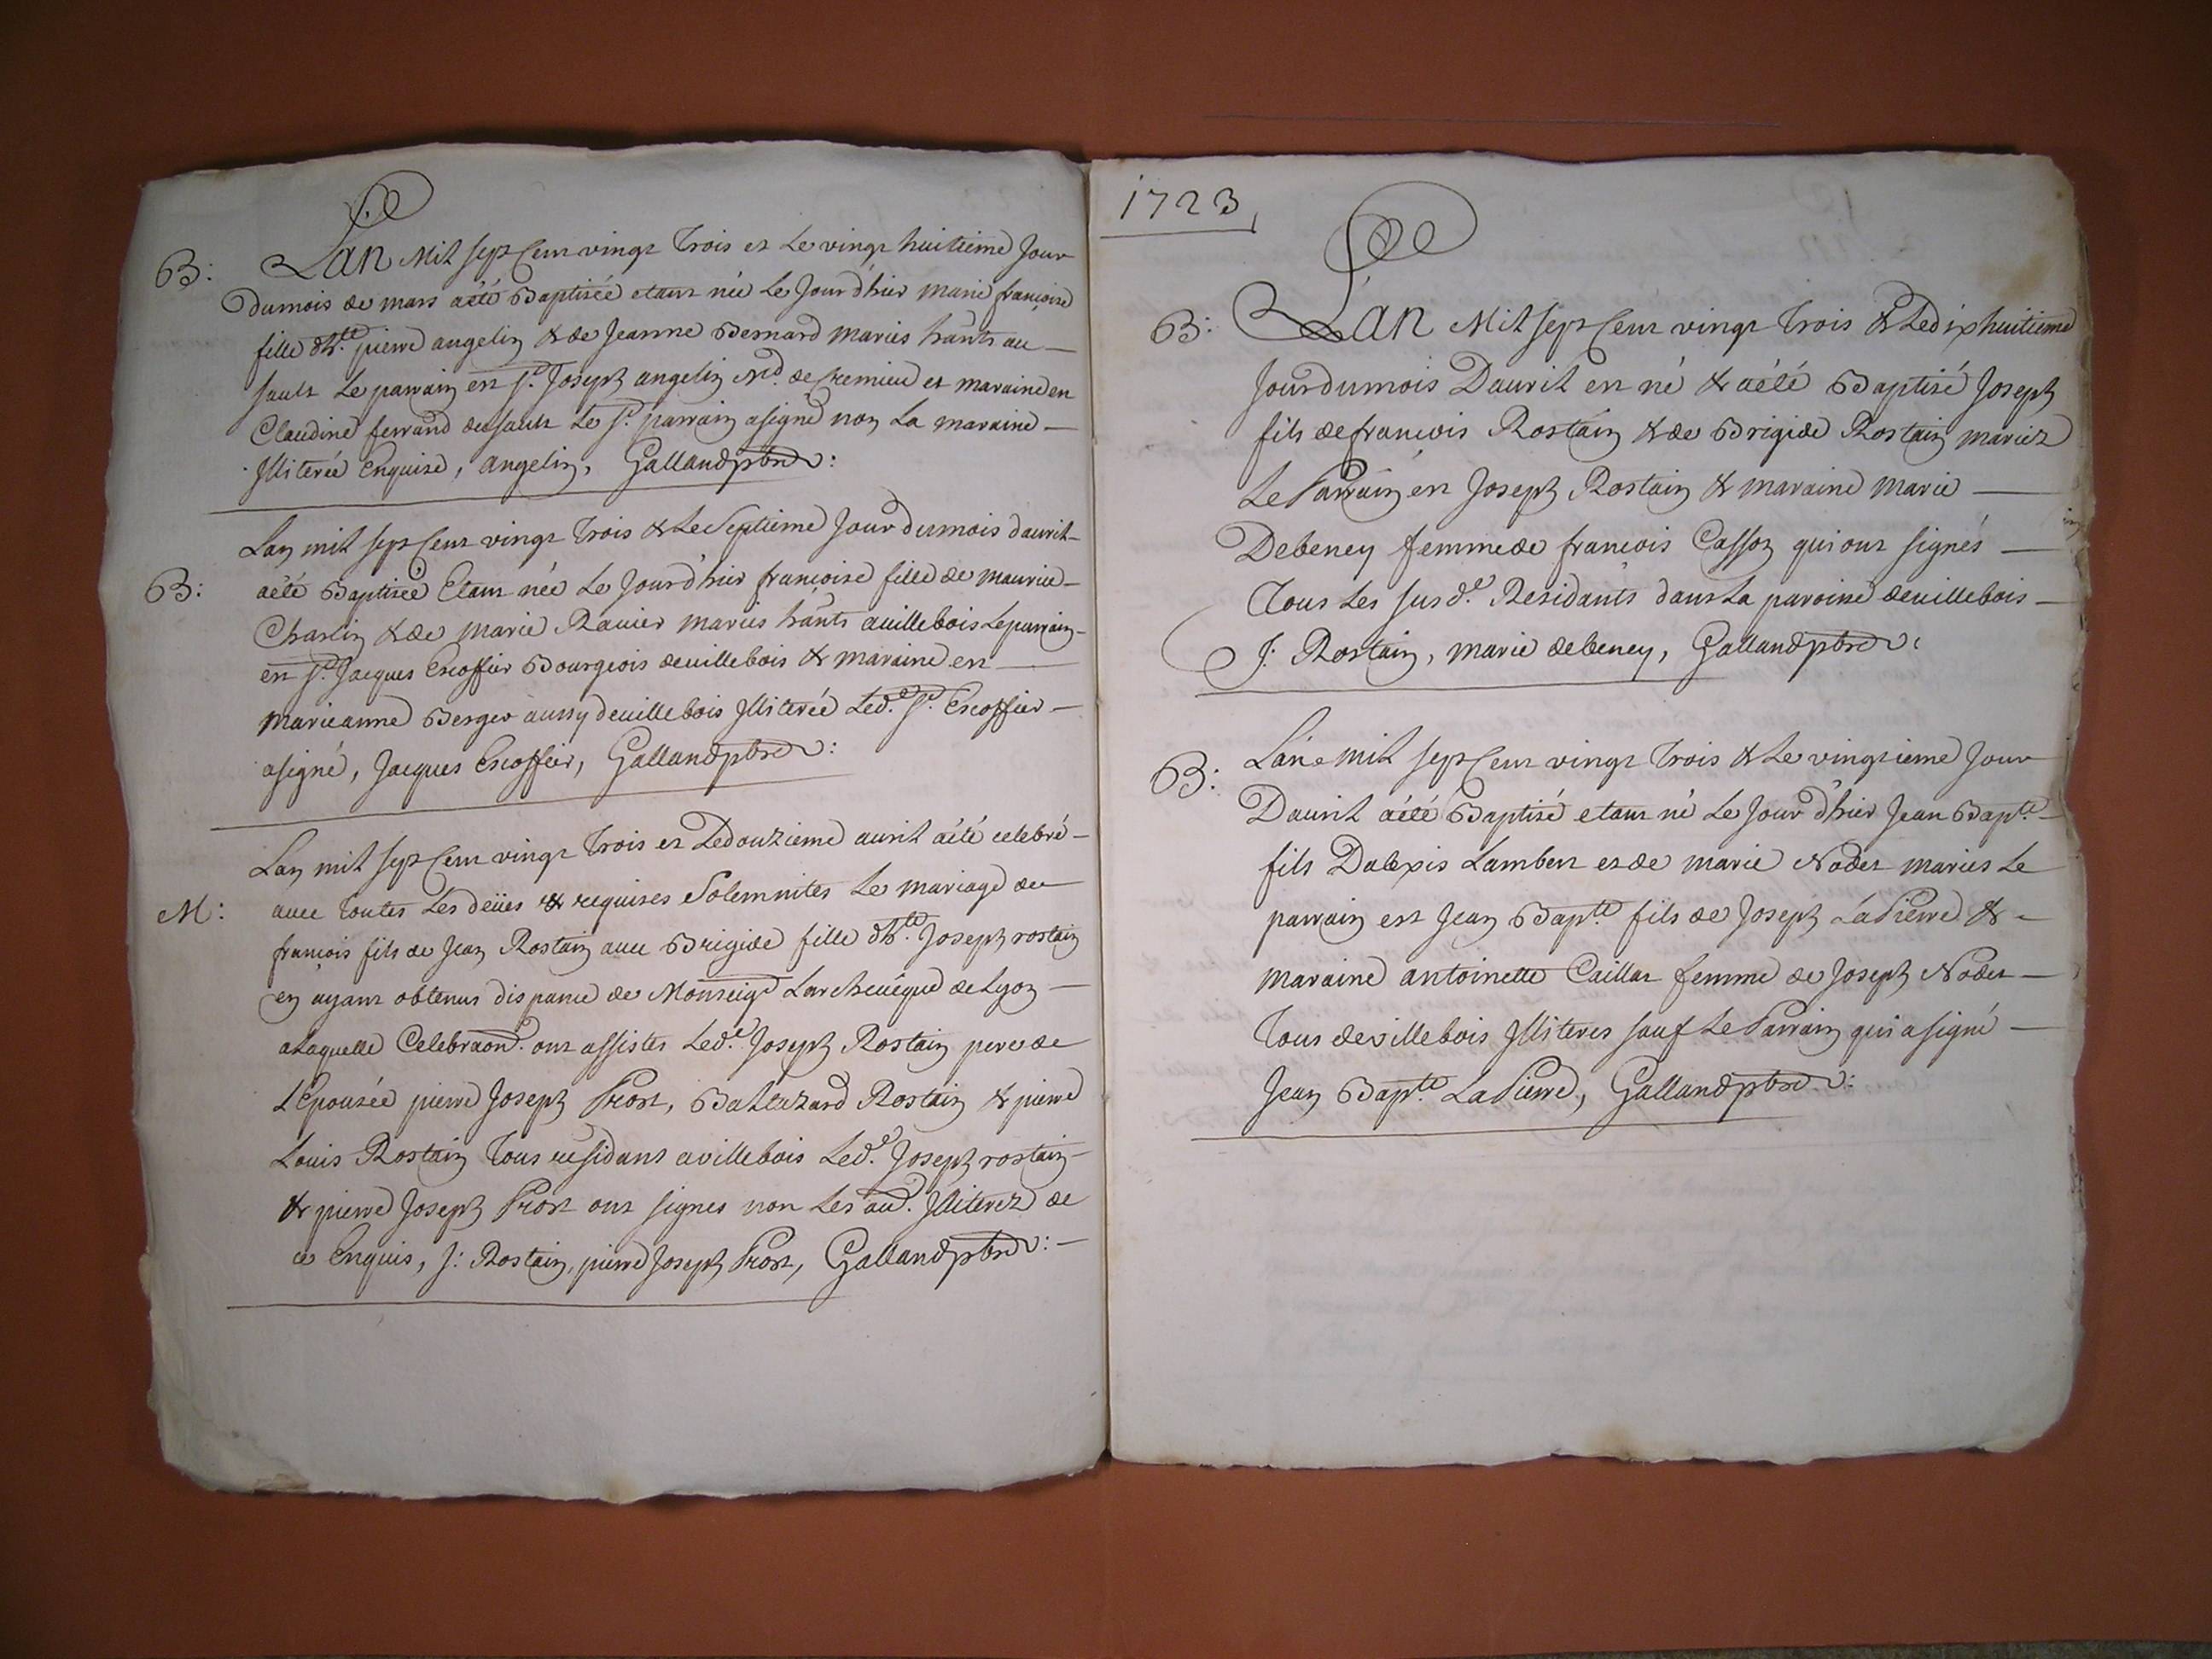 B: Lan Mil sept Cent vingt Trois et Le vingt huitieme Jour
dumois de mars aété Baptisée etant née Le Jour d'hier marie françoise
fille d'h.te pierre angelin & de Jeanne Bernard mariés h̄ants au —
sault Le parrain est s.r Joseph angelin M.d de Cremieu et maraine est
Claudine ferrand dusault Le s.r parrain asigné non La maraine —
Illiterée Enquise, angelin, Galland pbre:
Lan mil sept Cent vingt Trois & Le Septieme Jour dumois davril —
B: aété Baptisée Etant née Le Jour d'hier françoise fille de maurice —
Charlin & de marie Ravier mariés h̄ants avillebois Leparrain —
est s.r Jacques Escoffier Bourgeois devillebois & maraine est —
marieanne Berger aussy devillebois Illiterée Led.e s.r Escoffier —
asigné, Jacques Escoffier, Galland pbre:
Lan mil sept Cent vingt Trois et Ledouzieme avril aété celebré —
M: avec Toutes Les deües & requises Solemnites Le mariage de
françois fils de Jean Rostain avec Brigide fille d'h.te Joseph rostain
en ayant obtenus dispance de Monseig.r Larchevêque de Lyon —
aLaquelle Celebraon. ont assistes Led.e Joseph Rostain pere de
LEpousée pierre Joseph Prost, Baltazard Rostain & pierre
Louis Rostain Tous residant avillebois Led.e Joseph rostain —
& pierre Joseph Prost ont signes non Les au.d Illiterez de
ce Enquis, J: Rostain, pierre Joseph Prost, Galland pbre: —
1723,
B: Lan Mil sept Cent vingt Trois & Ledixhuitieme
Jourdumois Davril est né & aété Baptisé Joseph
fils defrancois Rostain & de Brigide Rostain mariez
Le Parrain est Joseph Rostain & maraine Marie —
Debeney femmede francois Casson qui ont signés —
Tous Les susd.e Residants dans La paroisse devillebois —
J: Rostain, marie debeney, Galland pbre:
B: Lan mil sept Cent vingt Trois & Le vingtieme Jour
Davril aété Baptisé etant né Le Jour d'hier Jean Bap.te —
fils Dalexis Lambert et de marie Nodet mariés Le
parrain est Jean Bap.te fils de Joseph LaPierre & —
Maraine antoinette Caillat femme de Joseph Nodet —
Tous devillebois Illiteres sauf Le Parrain qui a signé —
Jean Bap.te LaPierre, Galland pbre: